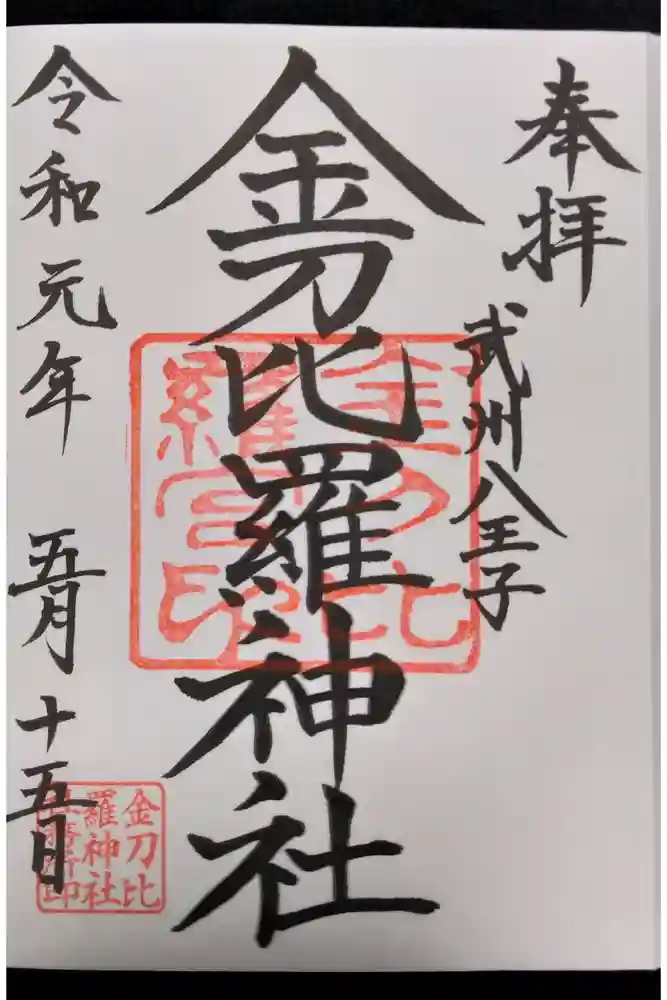 奉拝
武州八王子
金刀比羅神社
金刀比
羅宮印
令和元年 五月十五日
金刀比
羅神社
社務所印